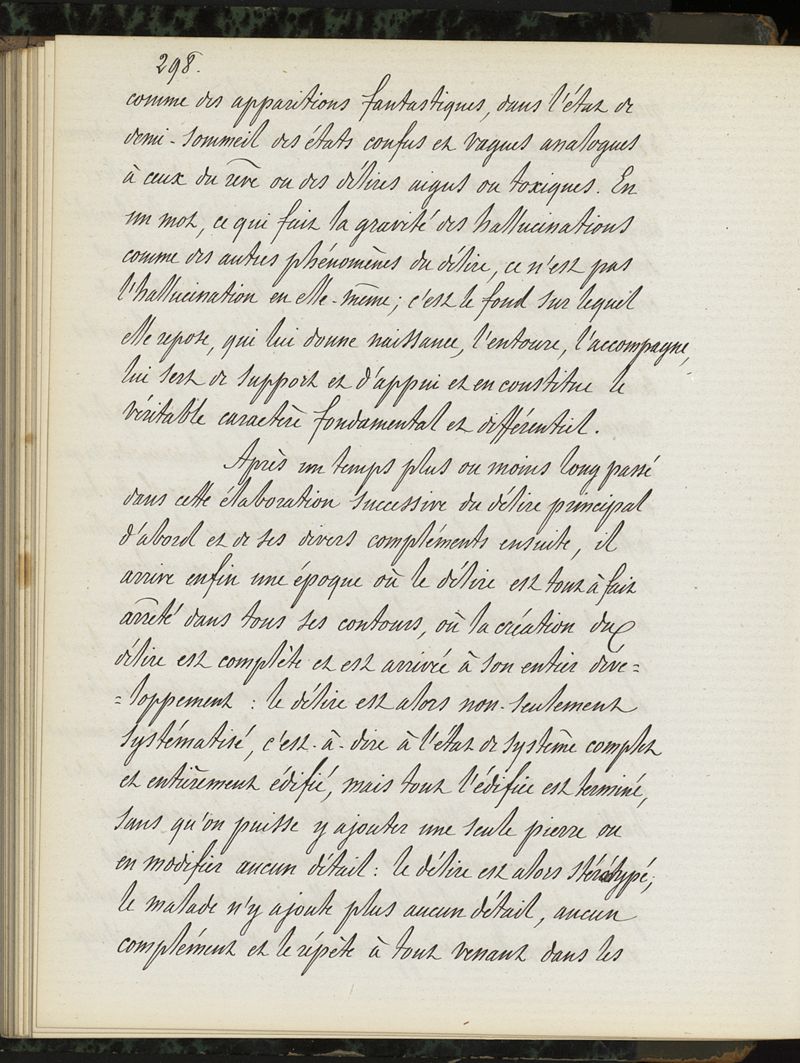 298.
comme des apparitions fantastiques, dans l'état de
demi-sommeil des états confus et vagues analogues
à ceux du rêve ou des délires aigus ou toxiques. En
un mot, ce qui fait la gravité des hallucinations
comme des autres phénomènes du délire, ce n'est pas
l'hallucination en elle-même; c'est le fond sur lequel
elle repose, qui lui donne naissance, l'entoure, l'accompagne,
lui sert de support et d'appui et en constitue le
véritable caractère fondamental et différentiel.
Après un temps plus ou moins long passé
dans cette élaboration successive du délire principal
d'abord et de ses divers compléments ensuite, il
arrive enfin une époque où le délire est tout à fait
arrêté dans tous ses contours, où la création du
délire est complète et est arrivée à son entier déve=
=loppement : le délire est alors non-seulement
systématisé, c'est-à-dire à l'état de système complet
et entièrement édifié, mais tout l'édifice est terminé,
sans qu'on puisse y ajouter une seule pierre ou
en modifier aucun détail : le délire est alors stéréotypé;
le malade n'y ajoute plus aucun détail, aucun
complément et le répète à tout venant dans les